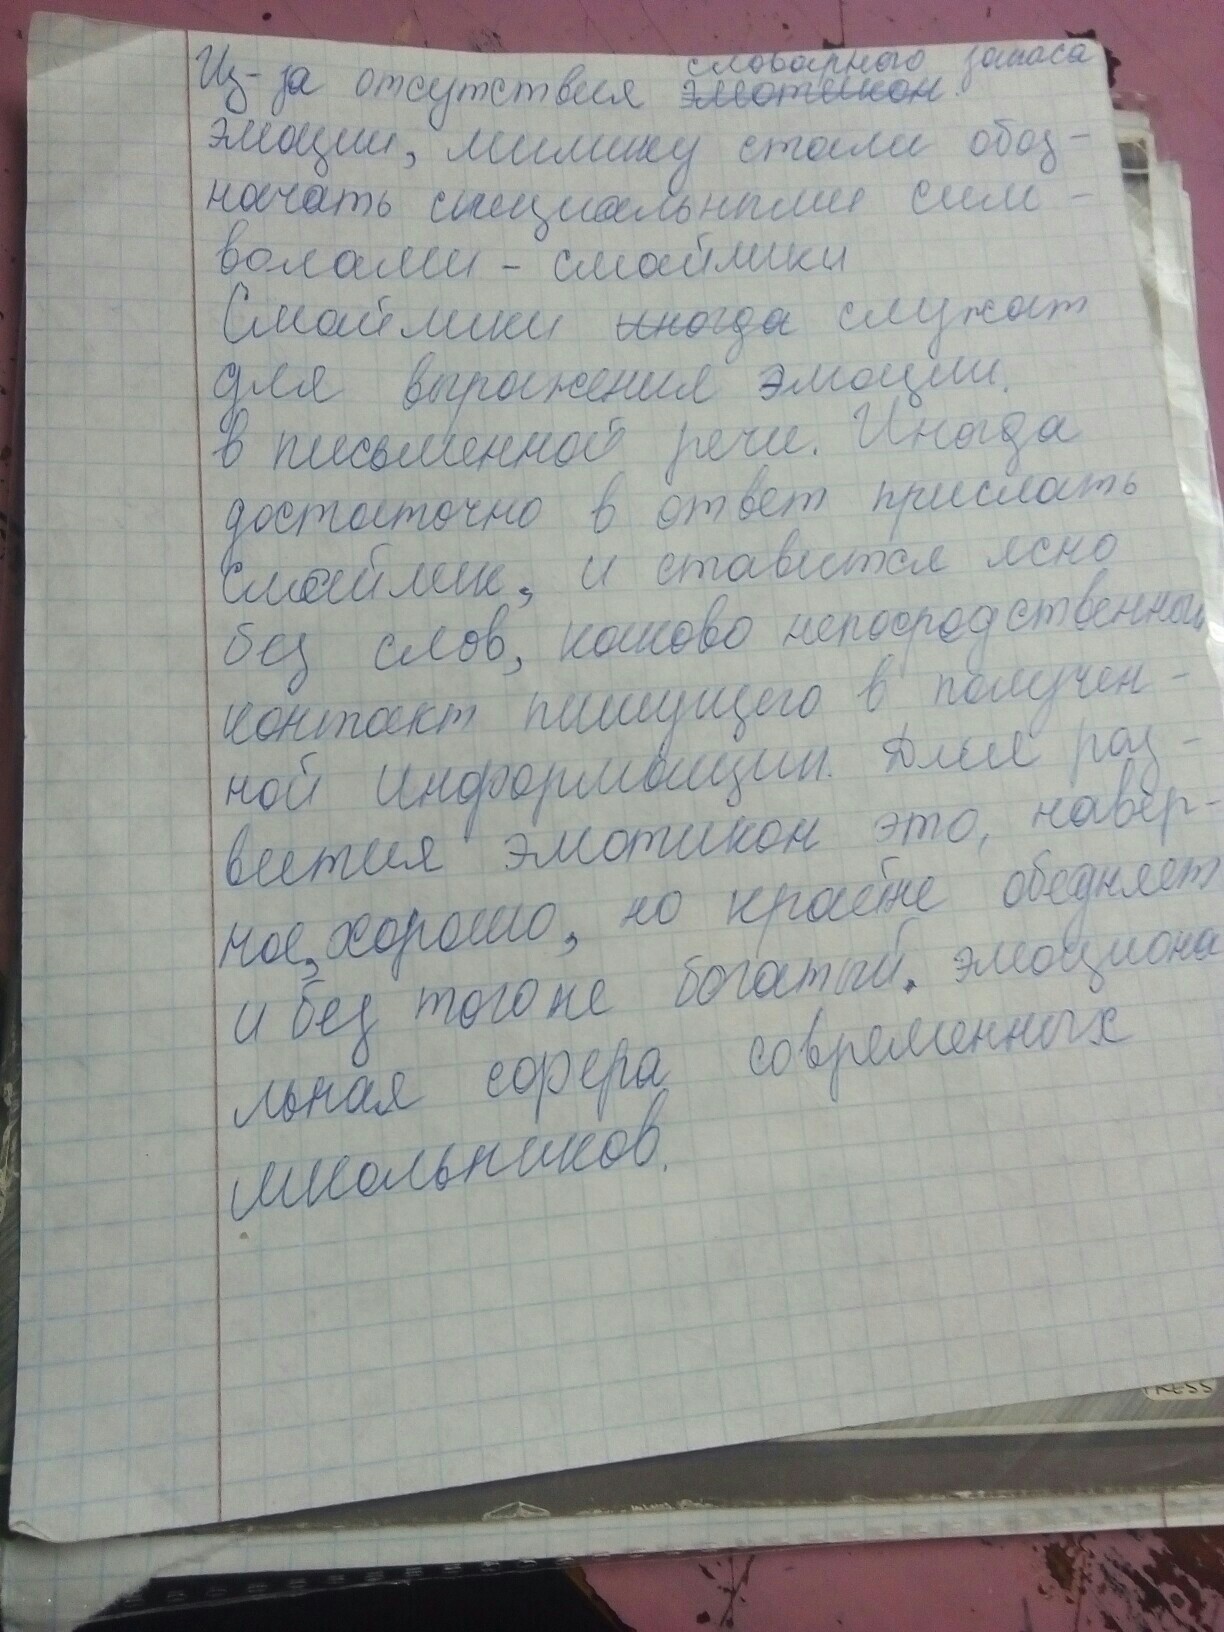 словарного запаса
Из-за отсутствия эмотикон
эмоции, мимику стали обоз-
начать специальными сим-
волами - смайлики
Смайлики иногда служат
для выражения эмоции.
в письменной речи. Иногда
достаточно в ответ прислать
смайлик, и ставится ясно
без слов, каково непосродственный
контакт пишущего в получен-
ной информации. Для раз-
вития эмотикон это, навер-
ное, хорошо, но крайне обедняет
и без того не богатый. эмоциона
льная сфера современных
школьников.
PRESS